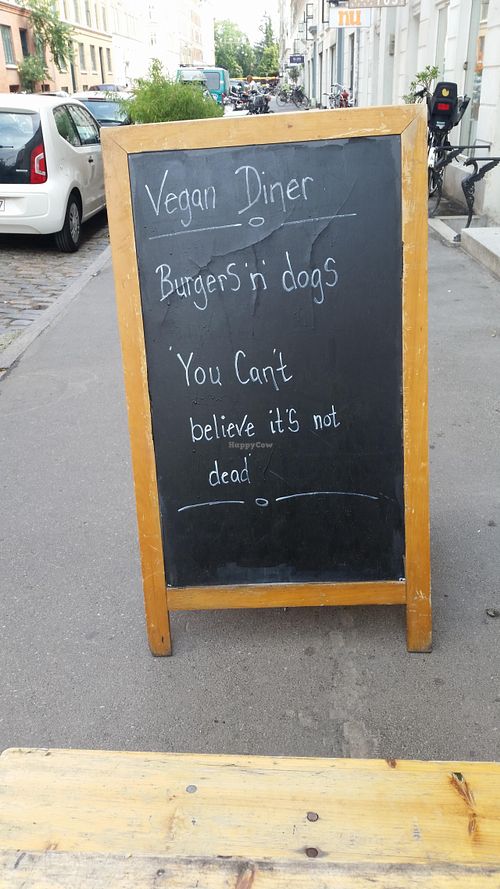 nu
Vegan Diner
Burgers 'n' dogs
'You Can't
believe it's not
dead'
HappyCow